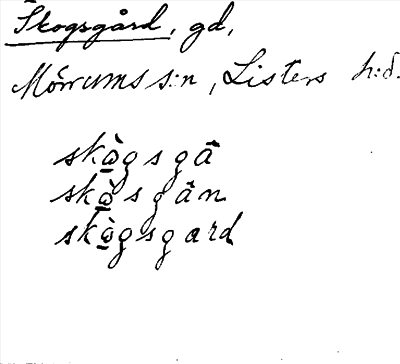 Skogsgård, gd,
Mörrums s:n, Listers h:d.
skò̲gsgå̄
skò̲sgå̄n
skò̲gsgard